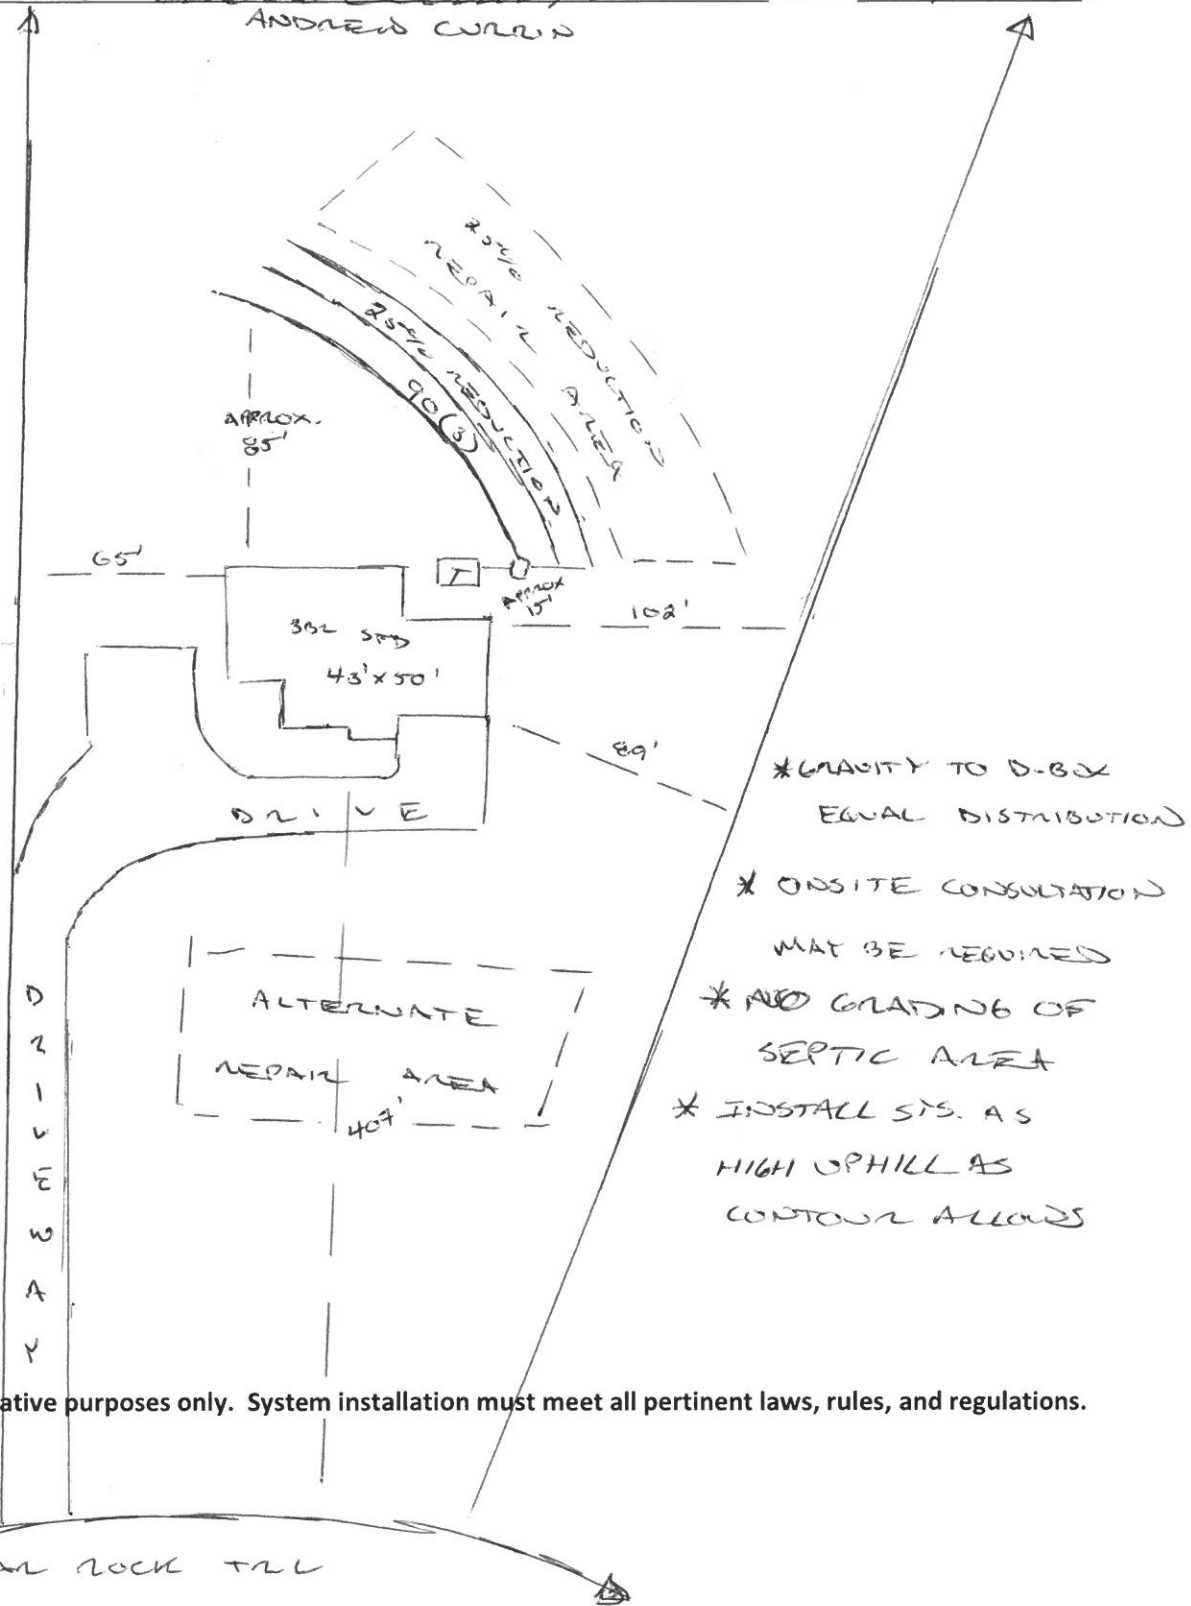 ANDREW CURRIN
25% REDUCTION
REPAIR AREA
25% REDUCTION
90(3)
APPROX.
85'
65'
T
APPROX
15'
102'
3BR SFD
43'x50'
89'
DRIVE
*GRAVITY TO D-BOX
EQUAL DISTRIBUTION
* ONSITE CONSULTATION
MAY BE REQUIRED
* NO GRADING OF
SEPTIC AREA
* INSTALL SYS. AS
HIGH UPHILL AS
CONTOUR ALLOWS
ALTERNATE
REPAIR AREA
407'
DRIVEWAY
ative purposes only. System installation must meet all pertinent laws, rules, and regulations.
AR ROCK TRL